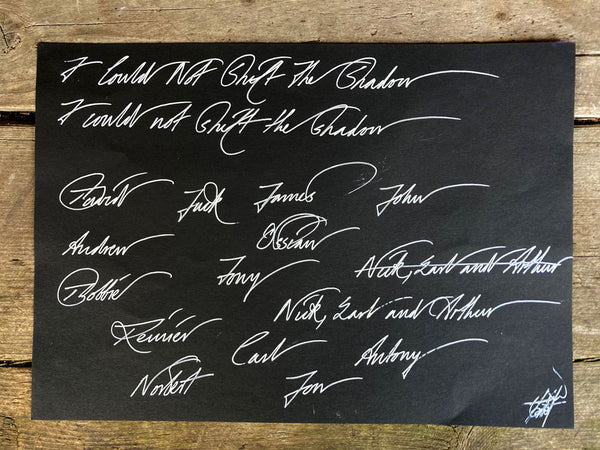 I Could Not Shift The Shadow
I could not shift the shadow
David Jack James John
Andrew Ossian
Bobbie Tony Nick, Earl and Arthur
Nick, Earl and Arthur
Renier
Carl Antony
Norbert Jon